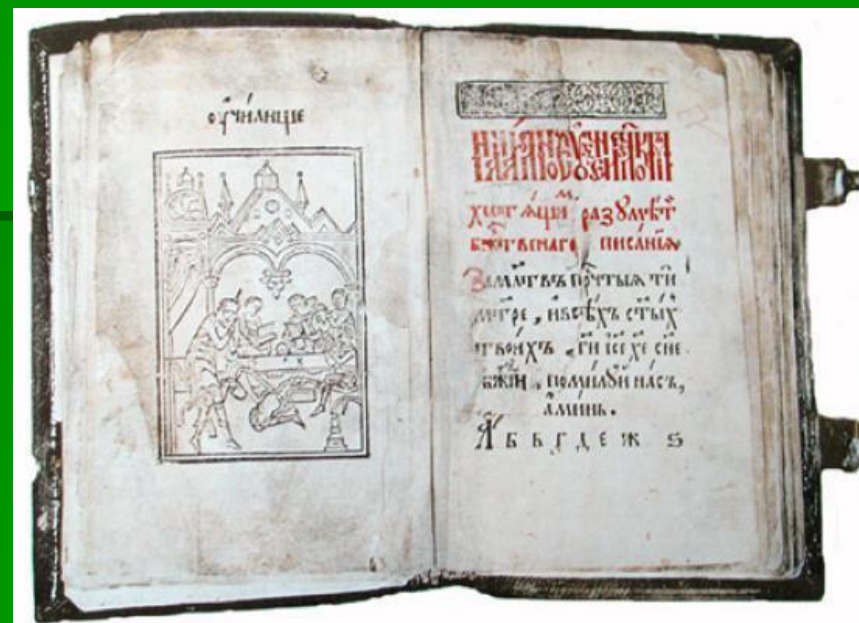 оучи́лище
хотѧ́щимъ разꙋмѣ́ти
бж҃ественаго писа́нїѧ
За мл҃твъ прⷱ҇тыѧ ти
мт҃ре, и всѣ́хъ ст҃ы́хъ
твои́хъ, гд҃и і҆се хе сн҃е
бж҃їи, поми́лꙋй на́съ,
а҆ми́нь.
А҆ Б В Г Д Е Ж Ѕ